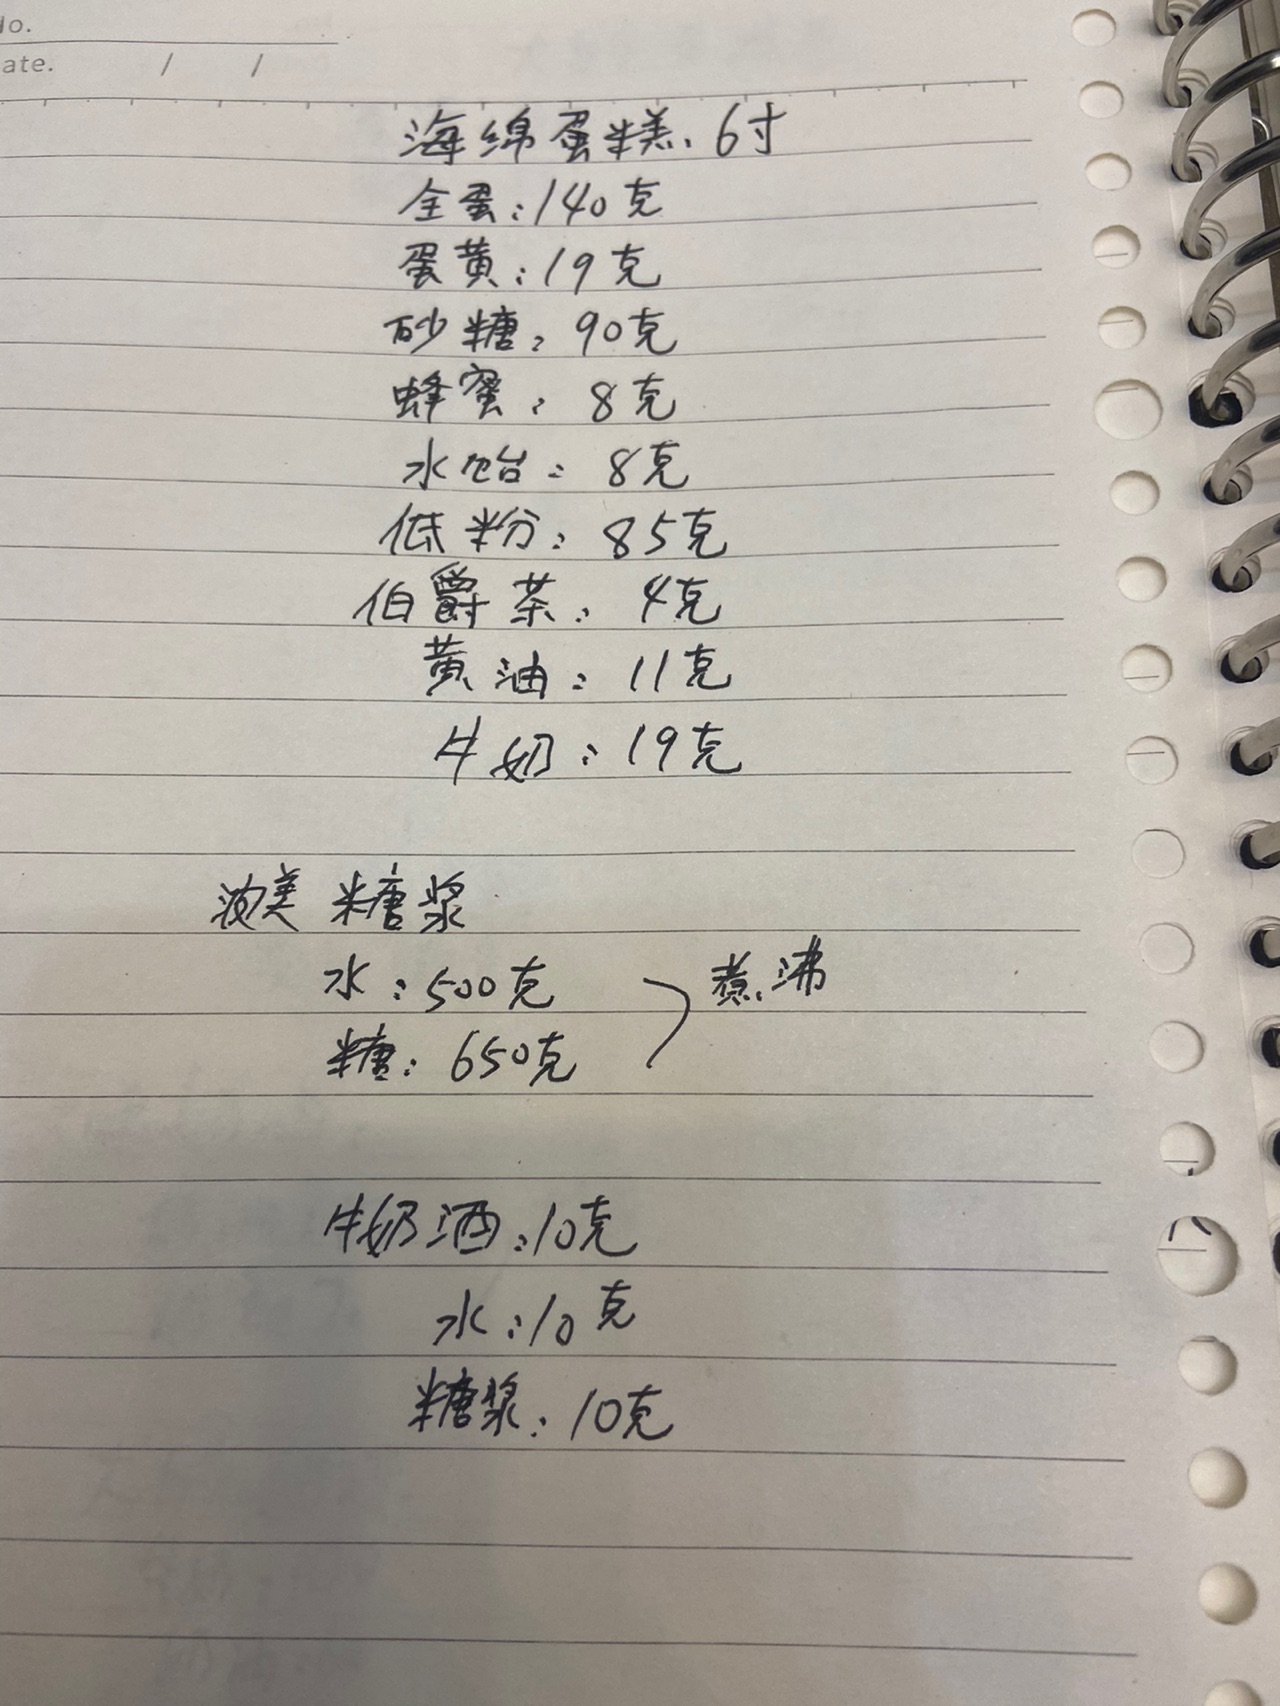 No.
Date. / /
海绵蛋糕. 6寸
全蛋: 140克
蛋黄: 19克
砂糖: 90克
蜂蜜: 8克
水饴: 8克
低粉: 85克
伯爵茶: 4克
黄油: 11克
牛奶: 19克
糖浆
水: 500克
煮沸
糖: 650克
牛奶酒: 10克
水: 10克
糖浆: 10克